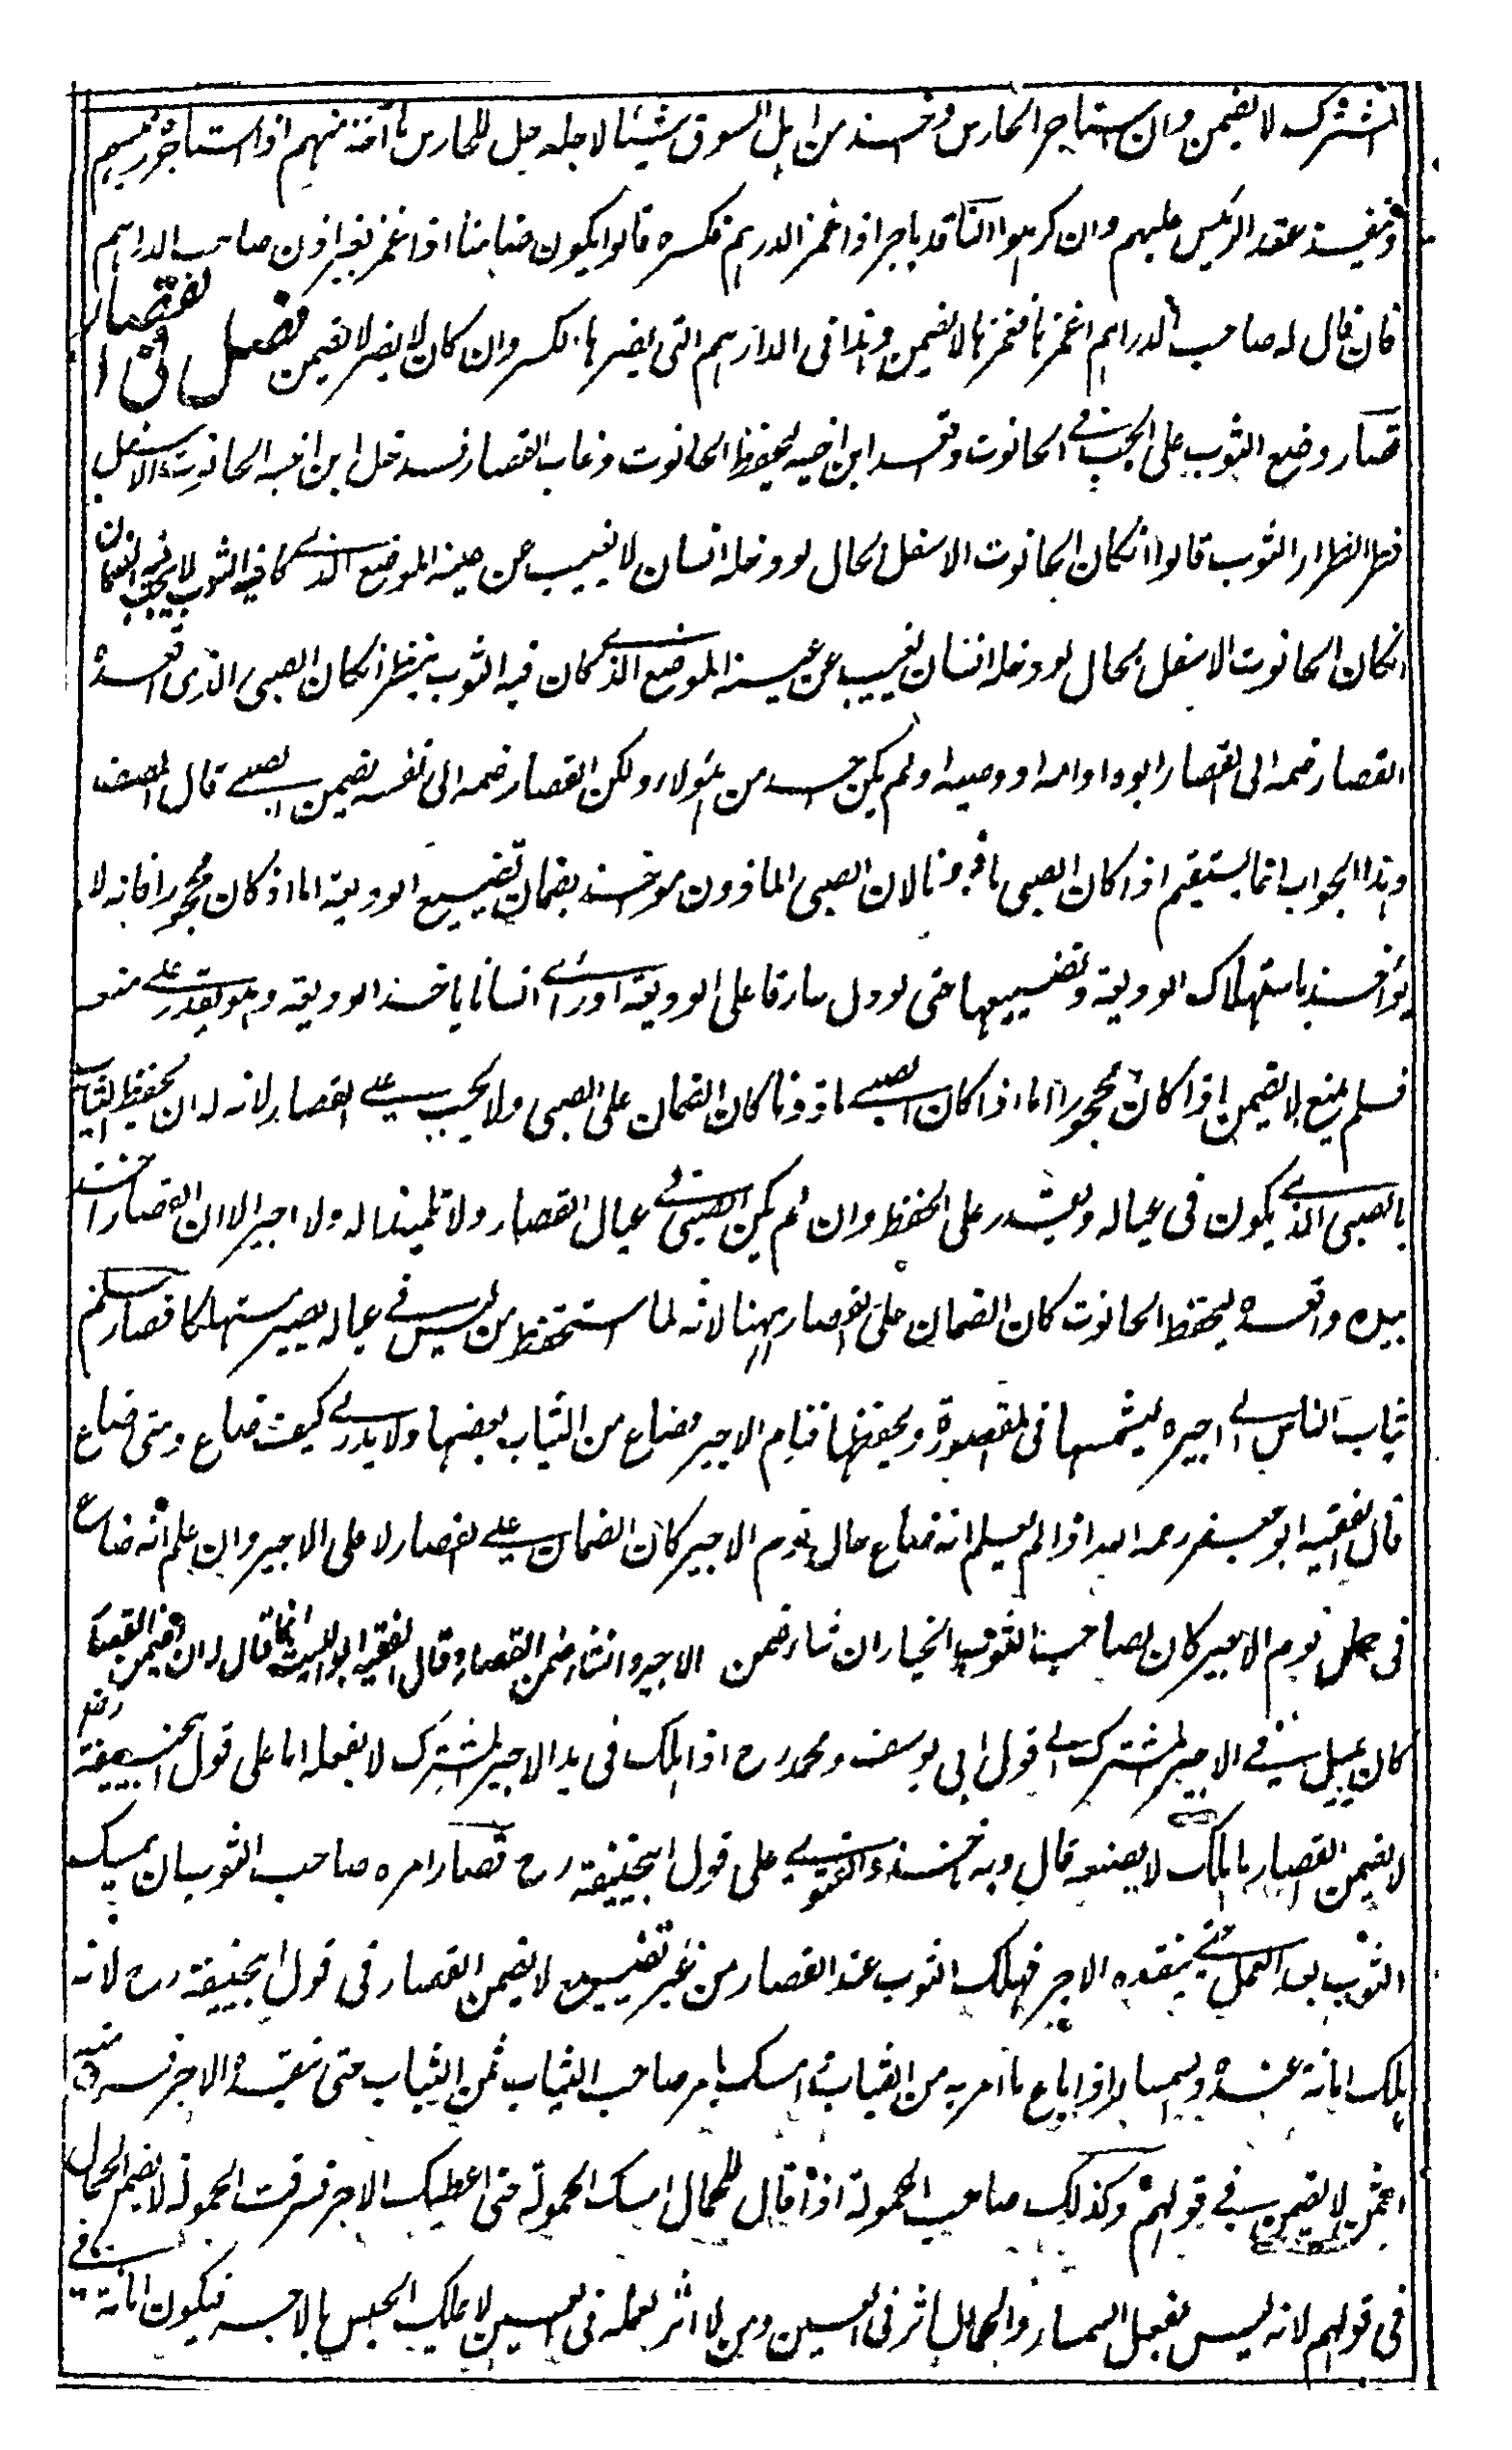 المشترك لا يضمن وان استاجر الحارس واخذ من اهل السوق شيئا لاجله حل للحارس ما أخذ منهم اذا استاجره رئيسهم
وينفذ عقد الرئيس عليهم وان كرهوا الناقد باجر اذا غمز الدرهم فكسره قالوا يكون ضامنا اذا غمز بغير اذن صاحب الدراهم
فان قال له صاحب الدراهم اغمزها فغمزها لا يضمن وهذا فى الدراهم التى يضرها الكسر وان كان لا يضر لا يضمن فصل فى القصار
قصار وضع الثوب على الحب فى الحانوت واقعد ابن اخيه ليحفظ الحانوت وغاب القصار فدخل ابن اخيه الحانوت الاسفل
فطر الطرار الثوب قالوا انكان الحانوت الاسفل بحال لو دخله انسان لا يغيب عن عينه الموضع الذى كان فيه الثوب لا يجب الضمان
انكان الحانوت الاسفل بحال لو دخله انسان يغيب عن عينه الموضع الذى كان فيه الثوب ينظر انكان الصبى الذى اقعده
القصار ضمه الى القصار ابوه او امه او وصيه او لم يكن احد من هؤلاء ولكن القصار ضمه الى نفسه يضمن الصبى قال المصنف
وهذا الجواب انما يستقيم اذا كان الصبى ماذونا لان الصبى الماذون يؤاخذ بضمان تضييع الوديعة اما اذ كان محجورا فانه لا
يؤاخذ باستهلاك الوديعة وتضييعها حتى لو دل سارقا على الوديعة او رأى انسانا ياخذ الوديعة وهو يقدر على منعه
فلم يمنع لا يضمن اذا كان محجورا اما اذا كان الصبى ماذونا كان الضمان على الصبى ولا يجب على القصار لانه له ان يحفظ الثياب
بالصبى الذى يكون فى عياله ويقدر على الحفظ وان لم يكن الصبى فى عيال القصار ولا تلميذا له ولا اجير الا ان القصار اخذ
بيده واقعده ليحفظ الحانوت كان الضمان على القصار ههنا لانه لما استحفظ من ليس فى عياله يصير مستهلكا قصار سلم
ثياب الناس الى اجيره ليشمسها فى المقصورة ويحفظها فنام الاجير فضاع من الثياب بعضها ولا يدرى كيف ضاع ومتى ضاع
قال الفقيه ابو جعفر رحمه الله اذا لم يعلم انه ضاع حال نوم الاجير كان الضمان على القصار لا على الاجير وان علم انه ضاع
فى حال نوم الاجير كان لصاحب الثوب الخيار ان شاء ضمن الاجير وانشاء ضمن القصار وقال الفقيه ابو الليث انما قال له ان يضمن القصار
كان يميل فى الاجير المشترك الى قول ابى يوسف ومحمد رح اذا هلك فى يد الاجير المشترك لا بفعله اما على قول ابيحنيفة رضى
لا يضمن القصار ما هلك لا بصنعه قال وبه ناخذ والفتوى على قول ابيحنيفة رح قصار امره صاحب الثوب ان يمسك
الثوب بعد العمل حتى ينقده الاجر فهلك الثوب عند القصار من غير تضييع لا يضمن القصار فى قول ابيحنيفة رح لانه
هلك امانة عنده والسمسار اذا باع ما امر به من الثياب وامسك بامر صاحب الثياب ثمن الثياب حتى ينقده الاجر فسرق منه
الثمن لا يضمن فى قولهم وكذلك صاحب الحمولة اذا قال للحمال امسك الحمولة حتى اعطيك الاجر فسرقت الحمولة لا يضمن الحمال
فى قولهم لانه ليس لفعل السمسار والحمال اثر فى العين ومن لا اثر لعمله فى العين لا يملك الحبس بالاجر فيكون امانة فى